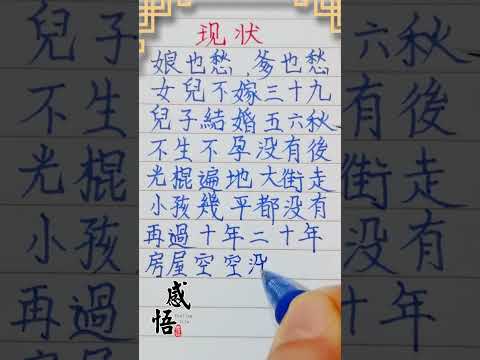 现状
娘也愁,爹也愁
女兒不嫁三十九
兒子結婚五六秋
不生不孕没有後
光棍遍地大街走
小孩幾平都没有
再過十年二十年
房屋空空
感悟